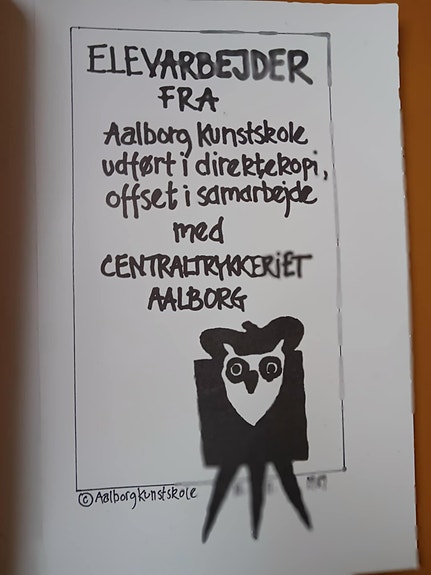 ELEVARBEJDER
FRA
Aalborg Kunstskole
udført i direktekopi,
offset i samarbejde
med
CENTRALTRYKKERiET
AALBORG
© Aalborgkunstskole